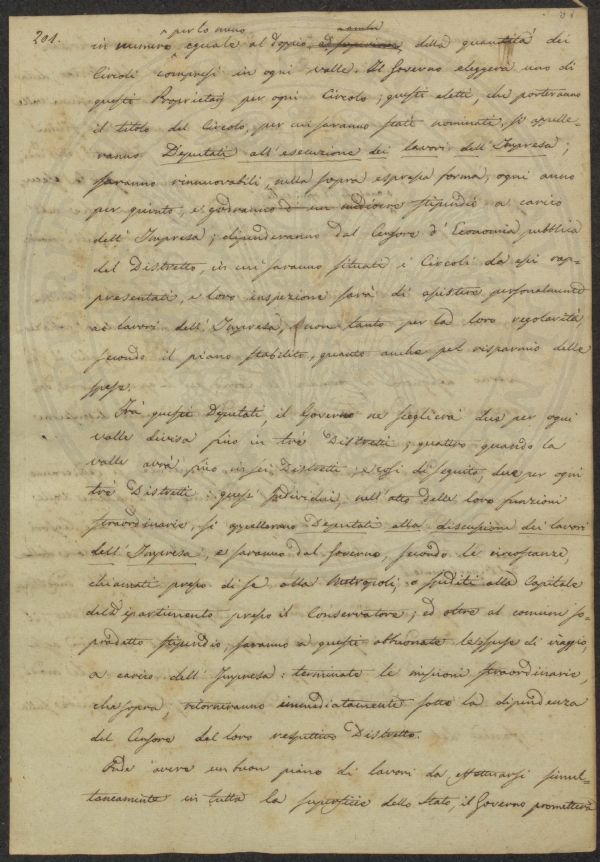 201.
per lo meno
in numero eguale al doppio, ed superiore, della quantità dei
Circoli compresi in ogni valle. Il Governo eleggerà uno di
questi Proprietarj per ogni Circolo; questi eletti, che porteranno
il titolo del Circolo, per cui saranno stati nominati, si appelle-
ranno Deputati all'esecuzione dei lavori dell'Impresa;
saranno rinnovabili, nella sopra espressa forma, ogni anno
per quinto, e godranno d' un mediocre stipendio a carico
dell'Impresa; dipenderanno dal Censore d'Economia pubblica
del Distretto, in cui saranno situati i Circoli da essi rap-
presentati, e loro inspezione sarà di assistere personalmente
ai lavori dell'Impresa, non tanto per la loro regolarità
secondo il piano stabilito, quanto anche pel risparmio delle
spese.
Trà questi Deputati, il Governo ne sceglierà due per ogni
valle divisa fino in tre Distretti; quattro quando la
valle avrà fino in sei Distretti, e così di seguito, due per ogni
trè Distretti: questi individui, nell'atto delle loro funzioni
straordinarie, si appelleranno Deputati alla discussione dei lavori
dell'Impresa, e saranno dal Governo, secondo le circostanze,
chiamati presso di se alla Metropoli, o spediti alla Capitale
del Dipartimento presso il Conservatore; ed oltre al comune so-
pradetto stipendio, saranno a questi abbuonate le spese di viaggio,
a carico dell'Impresa: terminate le missioni straordinarie,
che sopra, ritorneranno immediatamente sotto la dipendenza
del Censore del loro respettivo Distretto.
Onde avere un buon piano di lavori da effettuarsi simul-
taneamente in tutta la superficie dello Stato, il Governo prometterà